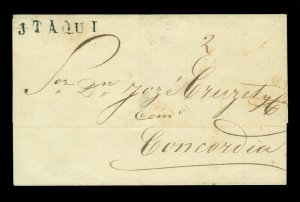 JTAQUI
2
Sor. Dn. José Cruzet
Com.o
Concordia